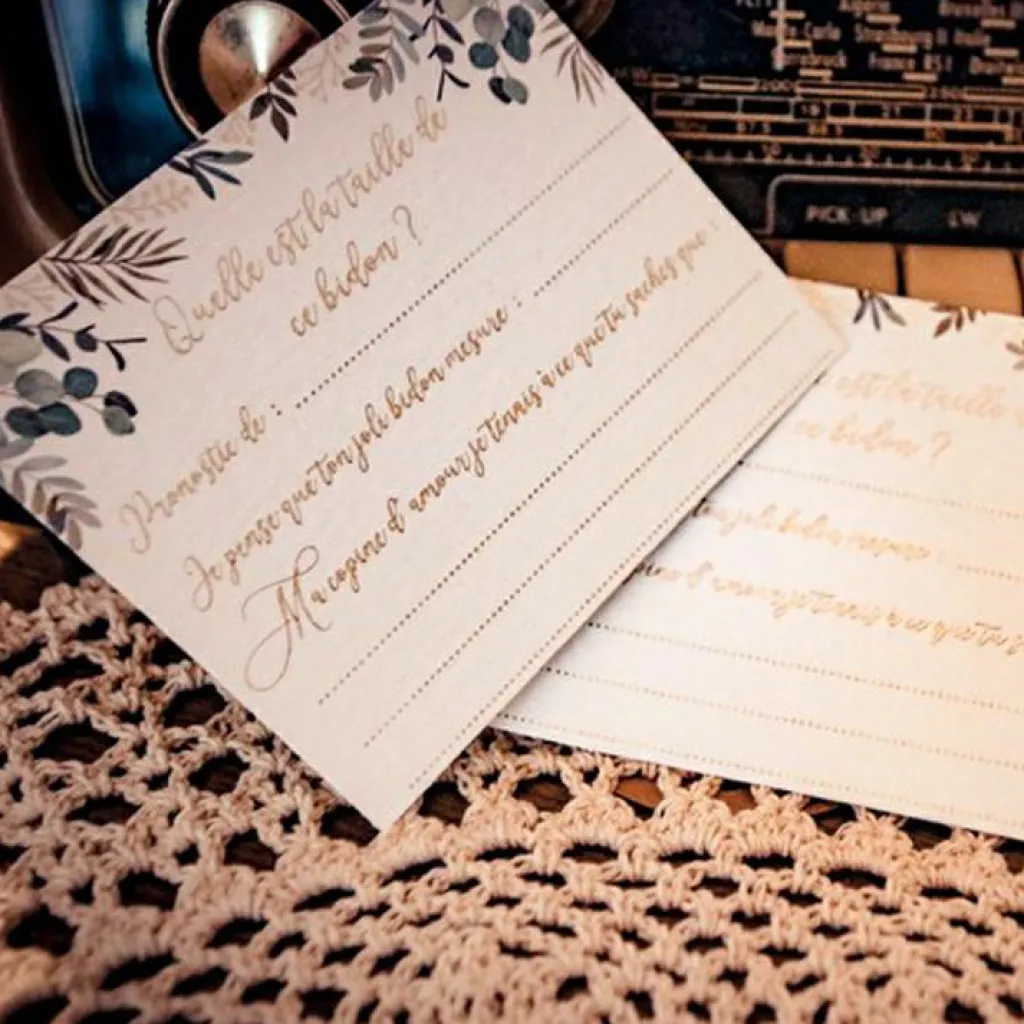 Quelle est la taille de
ce bidon ?
Pronostic de :
Je pense que ton joli bidon mesure :
Ma copine d'amour je tenais à ce que tu saches que :
est la taille
ce bidon ?
joli bidon mesure :
d'amour je tenais à ce que tu s
Alger
Bruxelles
Monte Carlo Strasbourg II
Innsbruck France RS1
87.5
PICK-UP LW